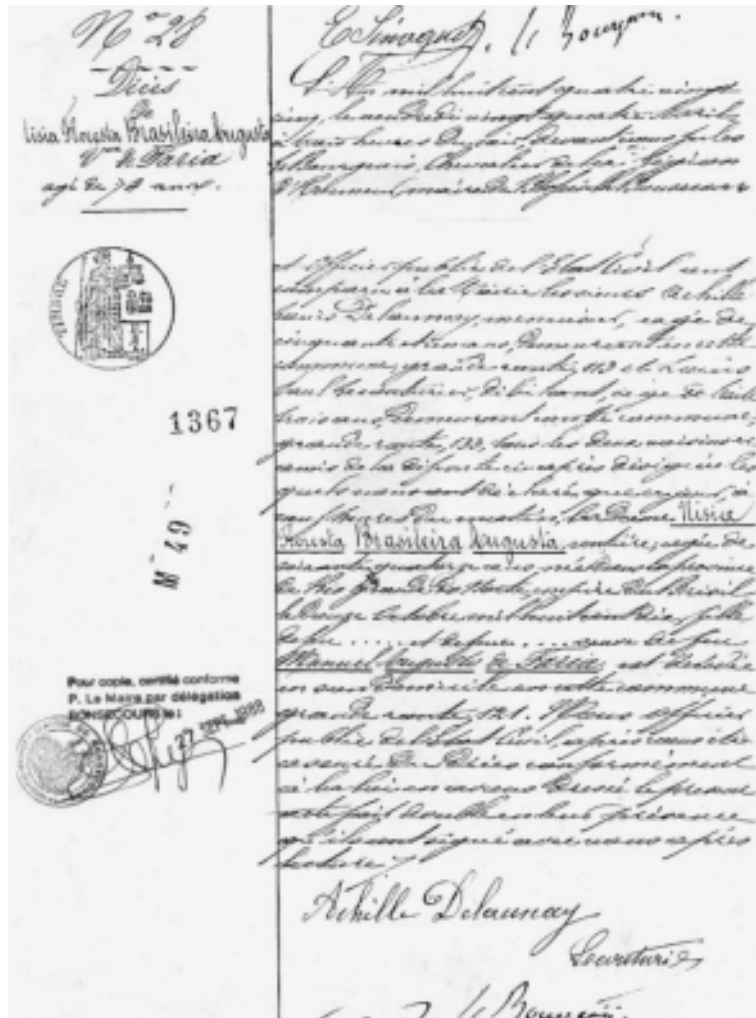 No 28
Décès
De
isia Floresta Brasileira Augusta
Vve de Faria
agé de 74 ans.
1367
M 49
Pour copie, certifié conforme
P. Le Maire par délégation
BONSECOURS le :
L'An mil huit cent quatre vingt
cinq, le vendredi vingt quatre Avril
à trois heures du soir, devant nous Jules
Bourgeois, Chevalier de la Légion
D'Honneur, maire de
et Officier public de l'Etat Civil sont
comparu à la Mairie les sieurs Achille
Louis Delaunay, menuisier, agé de
cinquante ans, demeurant en cette
commune, grande route, 113 et Louis
Paul débitant, agé de
trois ans, demeurant en cette commune,
grande route, 133, tous les deux voisins et
amis de la défunte ci après désignée les
quels nous ont déclaré que
heures du matin, la Dame Nisia
Floresta Brasileira Augusta, rentière, agée de
soixante quatorze ans, née dans la province
de Rio Grande do Norte, empire du Brésil
le douze Octobre mil huit cent dix, fille
de feu ..... et de feue .... veuve de feu
Manuel Augusto de Faria, est décédée
en son Domicile en cette commune
grande route, 121. Nous Officier
public de l'Etat Civil, après nous être
assuré du Décès conformément
à la loi en avons Dressé le présent
acte fait double en leur présence
qu'ils ont signé avec nous après
lecture.
Achille Delaunay